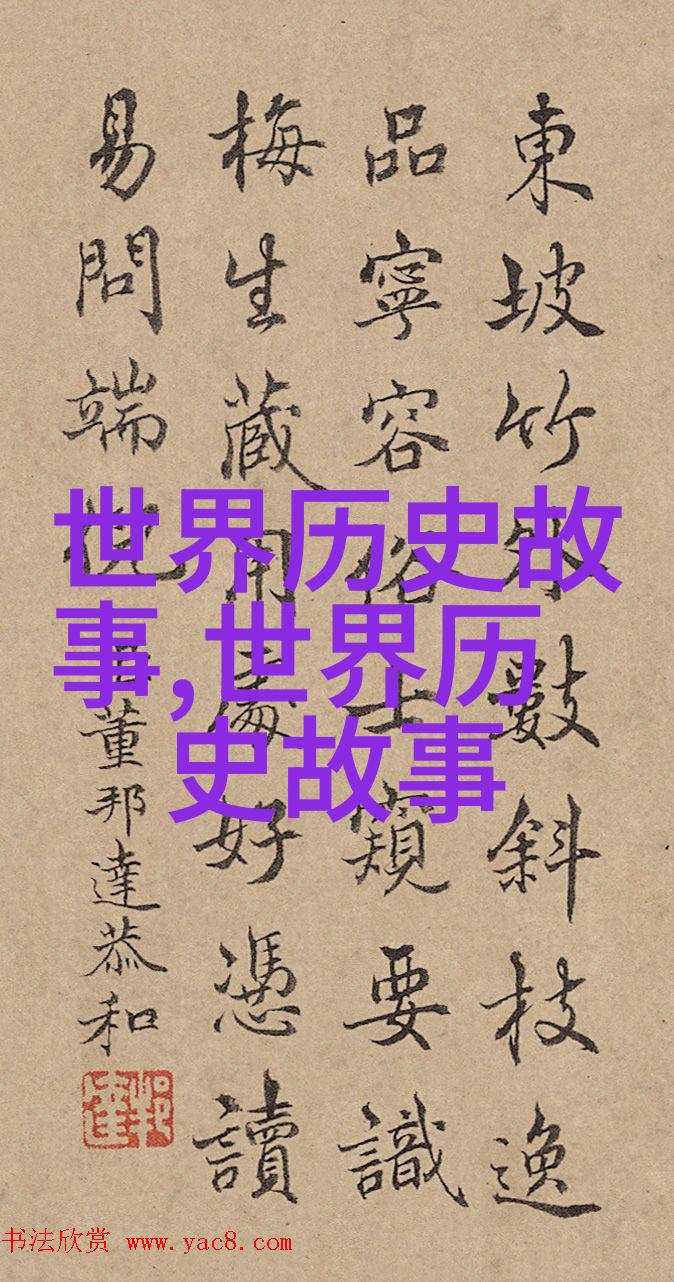 東坡竹外數斜枝逸
品寧容俗士窺要識
梅生藏用處好憑讀
易問端倪
臣董邦達恭和
世界历史故
事,世界历
史故事
书法欣赏 www.yac8.com